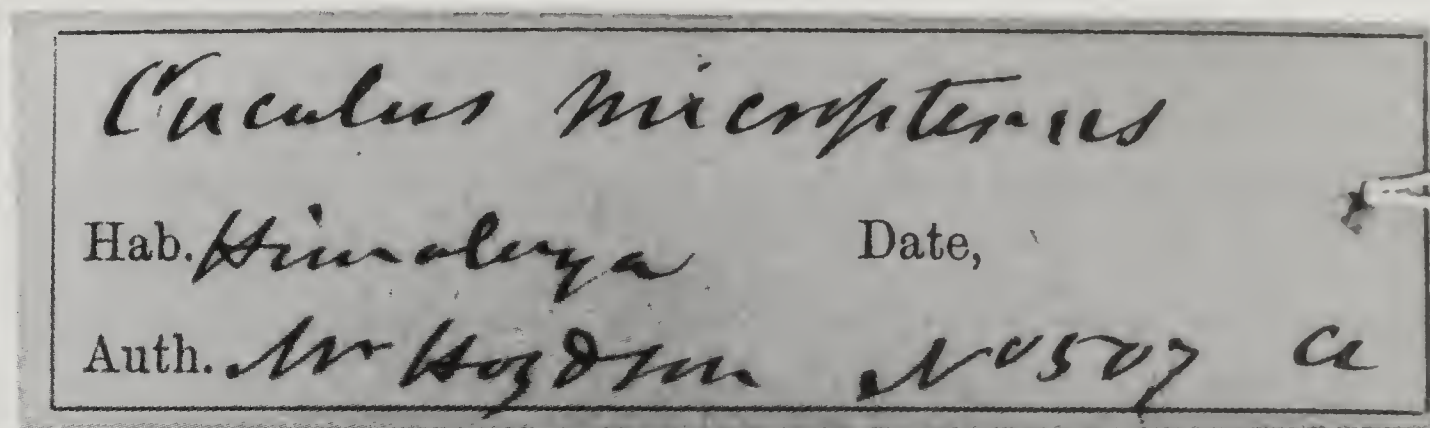 Cuculus micropterus
Hab. Himalaya Date,
Auth. Mr Hogdson No 507 a